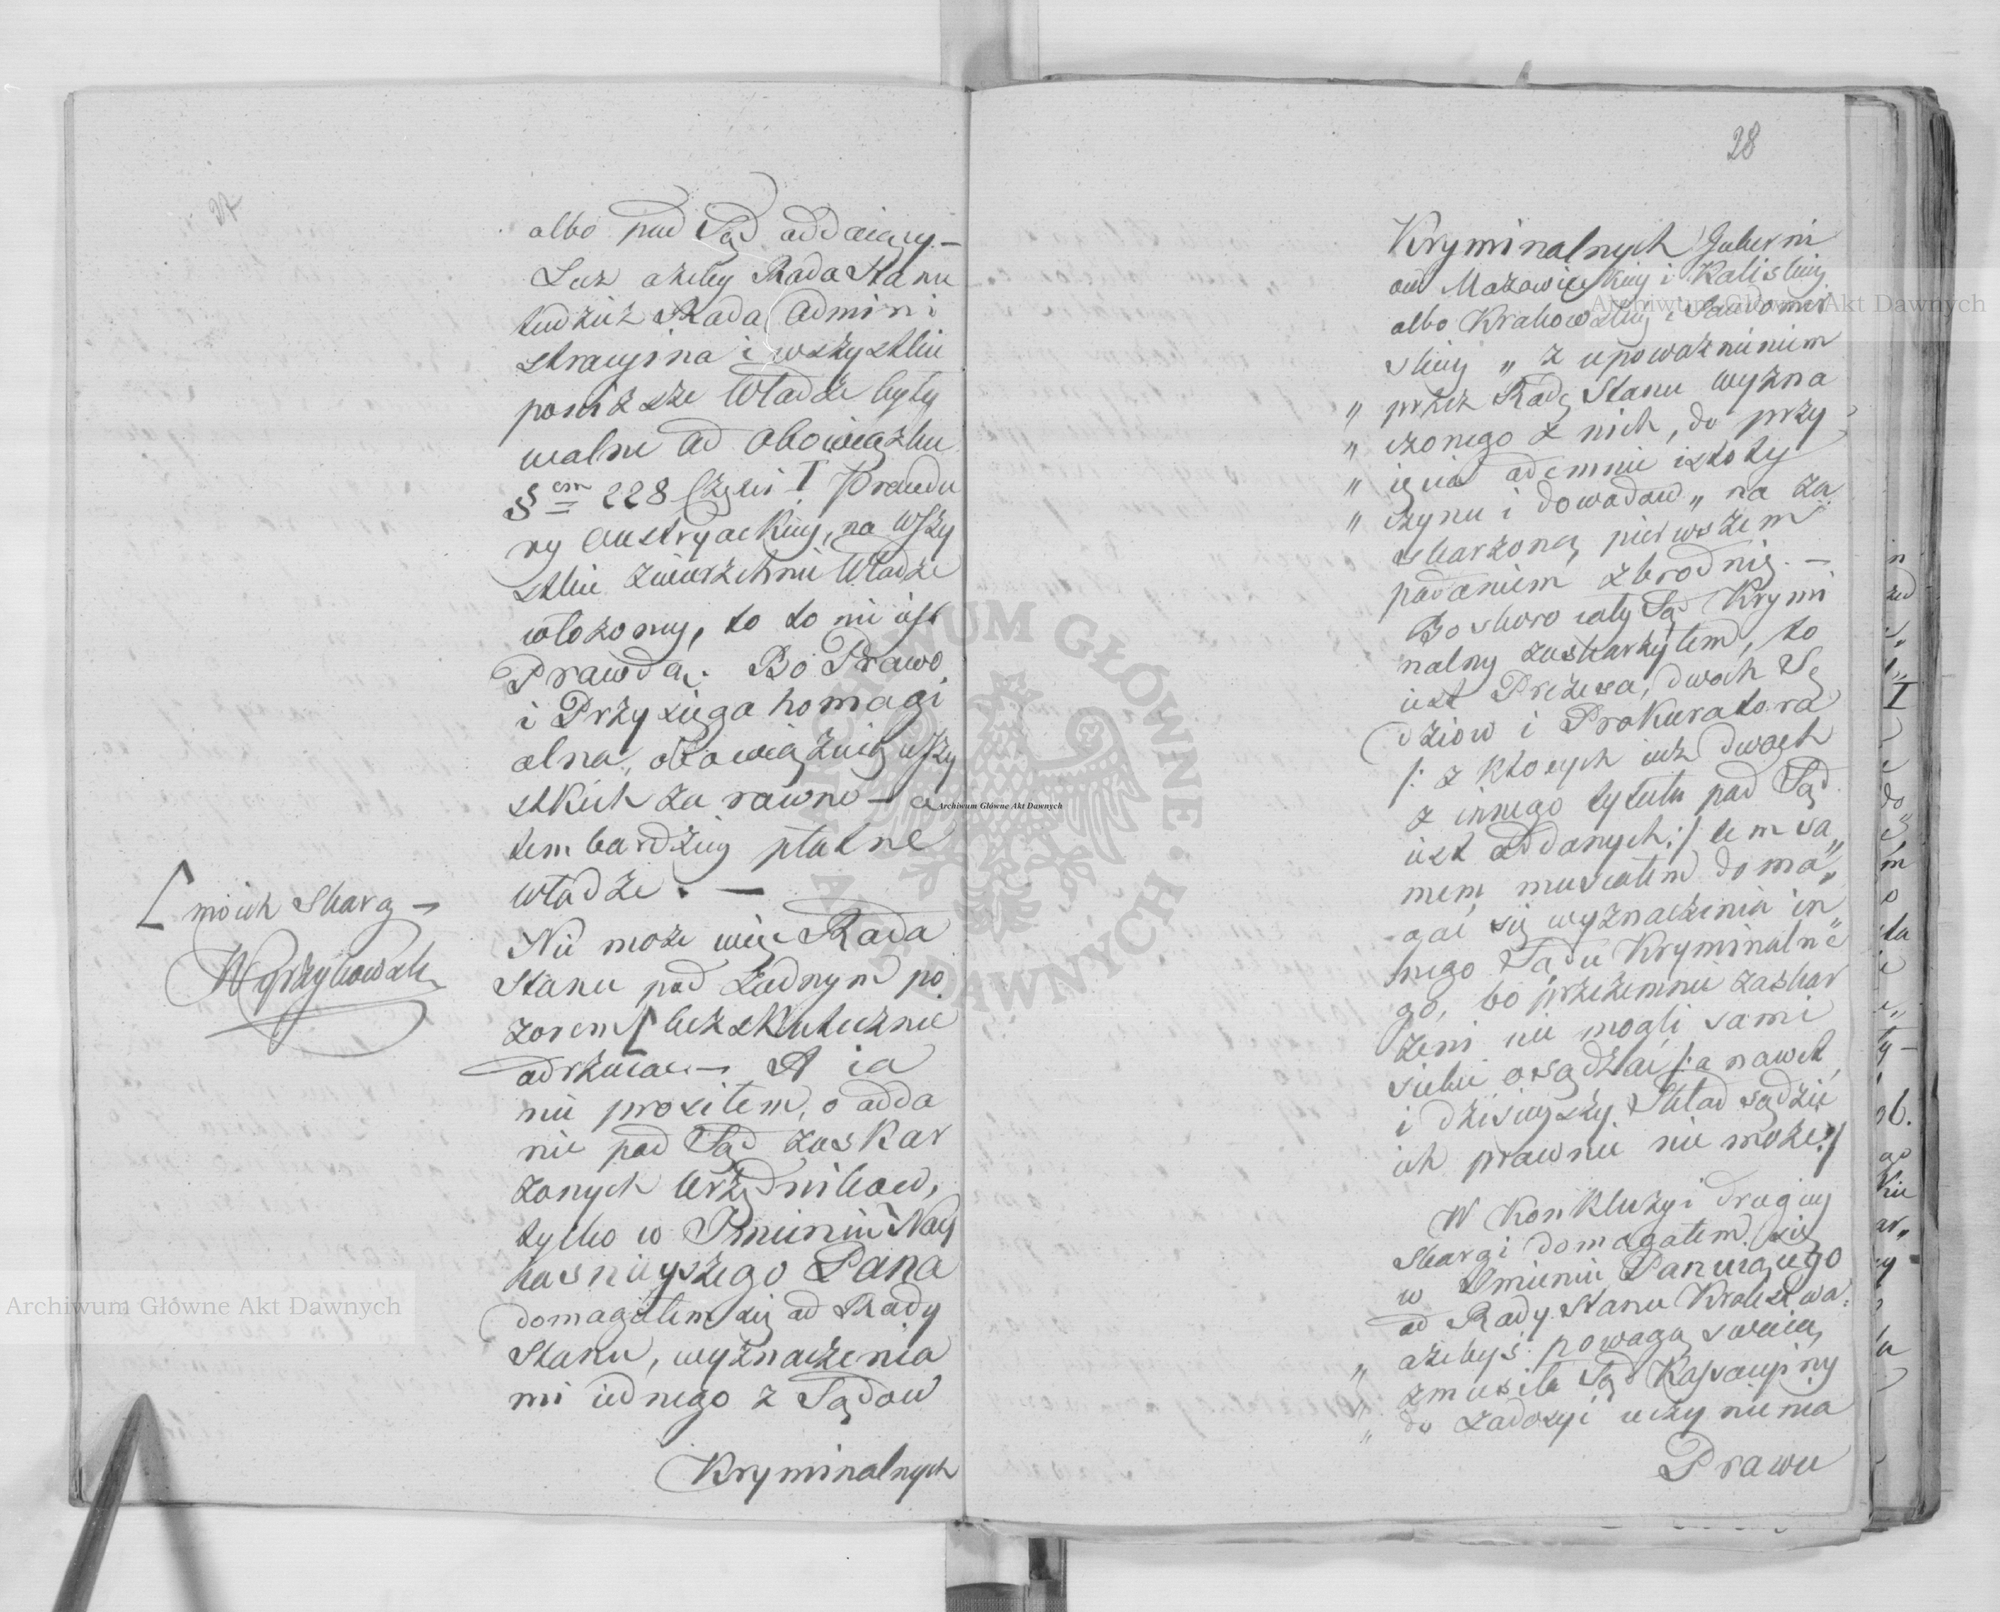 27
albo pod Sąd oddaiący —
Lecz ażeby Rada Stanu
tudzież Rada Admini
stracyina i wszystkie
poniższe Władze były
wolne od obowiązku
§em 228 Części I Procedu
ry Austryackiey, na wszy
stkie zwierzchnie Władze
włożony, to to nie iest
Prawdą. Bo Prawo
i Przysięga homagi
alna, obowiązuie wszy
stkich za rowno — a
tem bardziey płatne
Władze. —
Nie może więc Rada
Stanu pod żadnym po
zorem [ bezskutecznie
odrzucac — A ia
nie prosiłem, o odda
nie pod Sąd zaskar
żonych Urzędnikow,
tylko w Imieniu Nay
iasnieyszego Pana
domagałem się od Rady
Stanu, wyznaczenia
mi iednego z Sądow
Kryminalnych
[ moich Skarg —
W Grzybowski
28
Kryminalnych Guberni
ow Mazowieckiey i Kaliskiey
albo Krakowskiey i Sandomir
skiey „ z upoważnieniem
„ przez Radę Stanu wyzna
„ czonego z nich, do przy
„ ięcia odemnie istoty
„ czynu i dowodow „ na za
skarżoną pierwszem
podaniem zbrodnię. —
Bo skoro cały Sąd Krymi
nalny zaskarżyłem, to
iest Prezesa, dwoch Sę
dziow i Prokuratora
/: z ktorych iuż dwoch
z innego tytułu pod Sąd
iest oddanych :/ tem sa„
mem musiałem doma„
gać się wyznaczenia in„
nego Sądu Kryminalne
go, bo przezemnie zaskar
żeni nie mogli sami
siebie osądzać /: a nawet
i dzisieyszy Skład sądzić
ich prawnie nie może :/
W Konkluzyi drugiey
Skargi domagałem się
w Imieniu Panuiącego
od Rady Stanu Krolestwa:
„ ażebyś powagą swoią
„ zmusiła Sąd Kassacyiny
„ do zadosyć uczynienia
Prawu
Archiwum Główne Akt Dawnych
Archiwum Główne Akt Dawnych
Archiwum Główne Akt Dawnych
ARCHIWUM GŁÓWNE AKT DAWNYCH